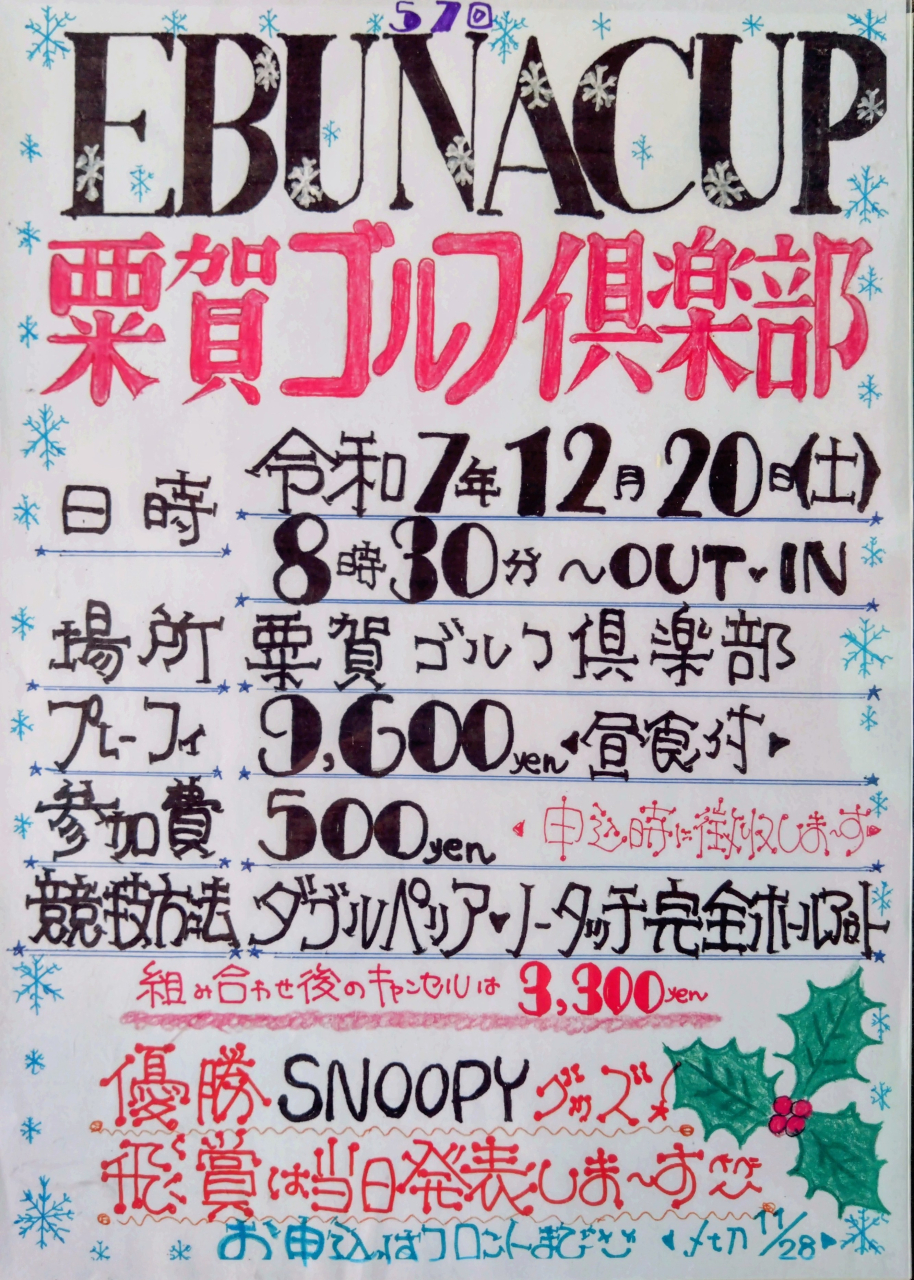 570
EBUNACUP
粟賀ゴルフ倶楽部
日時 令和7年12月20日(土)
8時30分〜OUT♥IN
場所 粟賀ゴルフ倶楽部
プレーフィ 9,600yen◀昼食付▶
参加費 500yen ◀申込時に徴収しま〜す▶
競技方法 ダブルペリア♥ノータッチ完全ホールアウト
組み合わせ後のキャンセルは3,300yen
優勝SNOOPYグッズ!
飛賞は当日発表しま〜す
お申込はフロントまで ◀〆切11/28▶